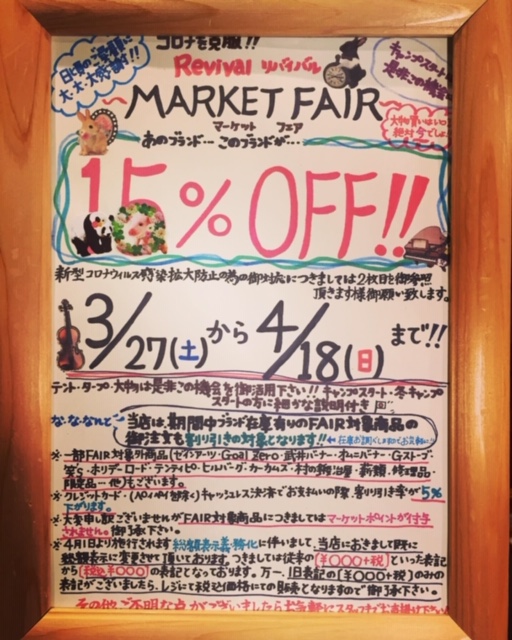 コロナを克服!!
日頃のご愛顧に
大・大・大感謝!!
Revival リバイバル
キャンプスタート
是非この機会
MARKET FAIR
マーケット フェア
大物買いはいつ
絶対今でしょ
あのブランド… このブランドが…
15% OFF!!
新型コロナウィルス感染拡大防止の為の御対応につきましては2枚目を御参照
頂きます様御願い致します。
3/27(土)から4/18(日)まで!!
テント・タープ・大物は是非この機会を御活用下さい!! キャンプスタート・冬キャンプ
スタートの方に細かな説明付き
な・な・なんと… 当店は、期間中ブランド在庫有りのFAIR対象商品の
御注文も割り引きの対象となります!! ←在庫お調べしますのでお気軽に
※一部FAIR対象外商品(ゼインアーツ・Goal Zero・武井バーナー・オムニバーナー・Gストーブ・
笑's・ホリデーロード・テンティピ・ヒルバーグ・カーカムス・村の鍛冶屋・薪類・修理品・
限定品…他)もございます。
※クレジットカード・(ペイペイ除く)キャッシュレス決済でお支払いの際、割り引き率が5%
下がります。
※大変申し訳ございませんがFAIR対象商品につきましてはマーケットポイントが付与
されません。御了承下さい。
※4月1日より施行されます総額表示義務化に伴いまして、当店におきまして既に
総額表示に変更させて頂いております。つきましては従来の(¥〇〇〇+税)といった表記
から(税込¥〇〇〇)の表記となっております。万一、旧表記の(¥〇〇〇+税)のみの
表記がございましたら、レジにて税込価格にての販売となりますので御了承下さい。
その他ご不明な点がございましたらお気軽にスタッフまでお声掛け下さい